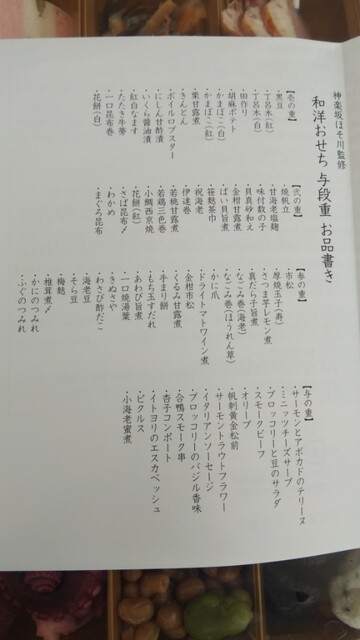 神楽坂ほそ川監修
和洋おせち 与段重 お品書き
【壱の重】
・黒豆
・丁呂木(紅)
・丁呂木(白)
・田作り
・胡麻ポテト
・かまぼこ(白)
・かまぼこ(紅)
・栗甘露煮
・きんとん
・ボイルロブスター
・にしん甘酢漬
・いくら醤油漬
・紅白なます
・たたき牛蒡
・一口昆布巻
・花餅(白)
【弐の重】
・焼帆立
・甘海老塩麹
・味付数の子
・貝真砂和え
・金柑甘露煮
・ばい貝旨煮
・笹麩茶巾
・祝海老
・伊達巻
・若桃甘露煮
・若鶏三色巻
・小鯛西京焼
・花餅(紅)
・さば昆布〆
・わかめ
・まぐろ昆布
【参の重】
・市松
・厚焼玉子(寿)
・さつま芋レモン煮
・真だら子旨煮
・なごみ巻(海老)
・なごみ巻(ほうれん草)
・かに爪
・ドライトマトワイン煮
・金柑市松
・くるみ甘露煮
・手まり餅
・もち玉すだれ
・あわび旨煮
・一口焼湯葉
・きぬさや
・わさび酢だこ
・海老豆
・そら豆
・梅麩
・椎茸煮〆
・かにのつみれ
・ふぐのつみれ
【与の重】
・サーモンとアボカドのテリーヌ
・ミニッツチーズサーブ
・ブロッコリーと豆のサラダ
・スモークビーフ
・オリーブ
・帆刺黄金松前
・サーモントラウトフラワー
・イタリアンソーセージ
・ブロッコリーのバジル香味
・合鴨スモーク串
・杏子コンポート
・イトヨリのエスカベッシュ
・ピクルス
・小海老蜜煮